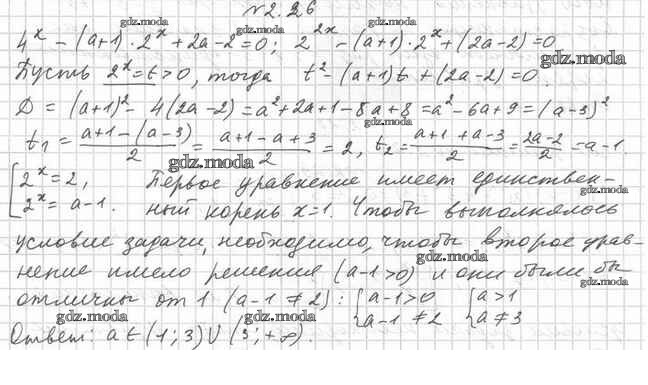 №2.26
4^x - (a+1)·2^x + 2a-2=0; 2^{2x} - (a+1)·2^x + (2a-2)=0
Пусть 2^x=t>0, тогда t^2-(a+1)t+(2a-2)=0.
D = (a+1)^2 - 4(2a-2) = a^2+2a+1-8a+8 = a^2-6a+9 = (a-3)^2
t_1 = \frac{a+1-(a-3)}{2} = \frac{a+1-a+3}{2} = 2, t_2 = \frac{a+1+a-3}{2} = \frac{2a-2}{2} = a-1
[2^x=2, Первое уравнение имеет единствен-
2^x=a-1. ный корень x=1. Чтобы выполнялось
условие задачи, необходимо, чтобы второе урав-
нение имело решения (a-1>0) и они были бы
отличны от 1 (a-1≠2): {a-1>0 {a>1
a-1≠2 a≠3
Ответ: a∈(1;3)∪(3;+∞).
gdz.moda
gdz.moda
gdz.moda
gdz.moda
gdz.moda
gdz.moda
gdz.moda
gdz.moda
gdz.moda
gdz.moda
gdz.moda